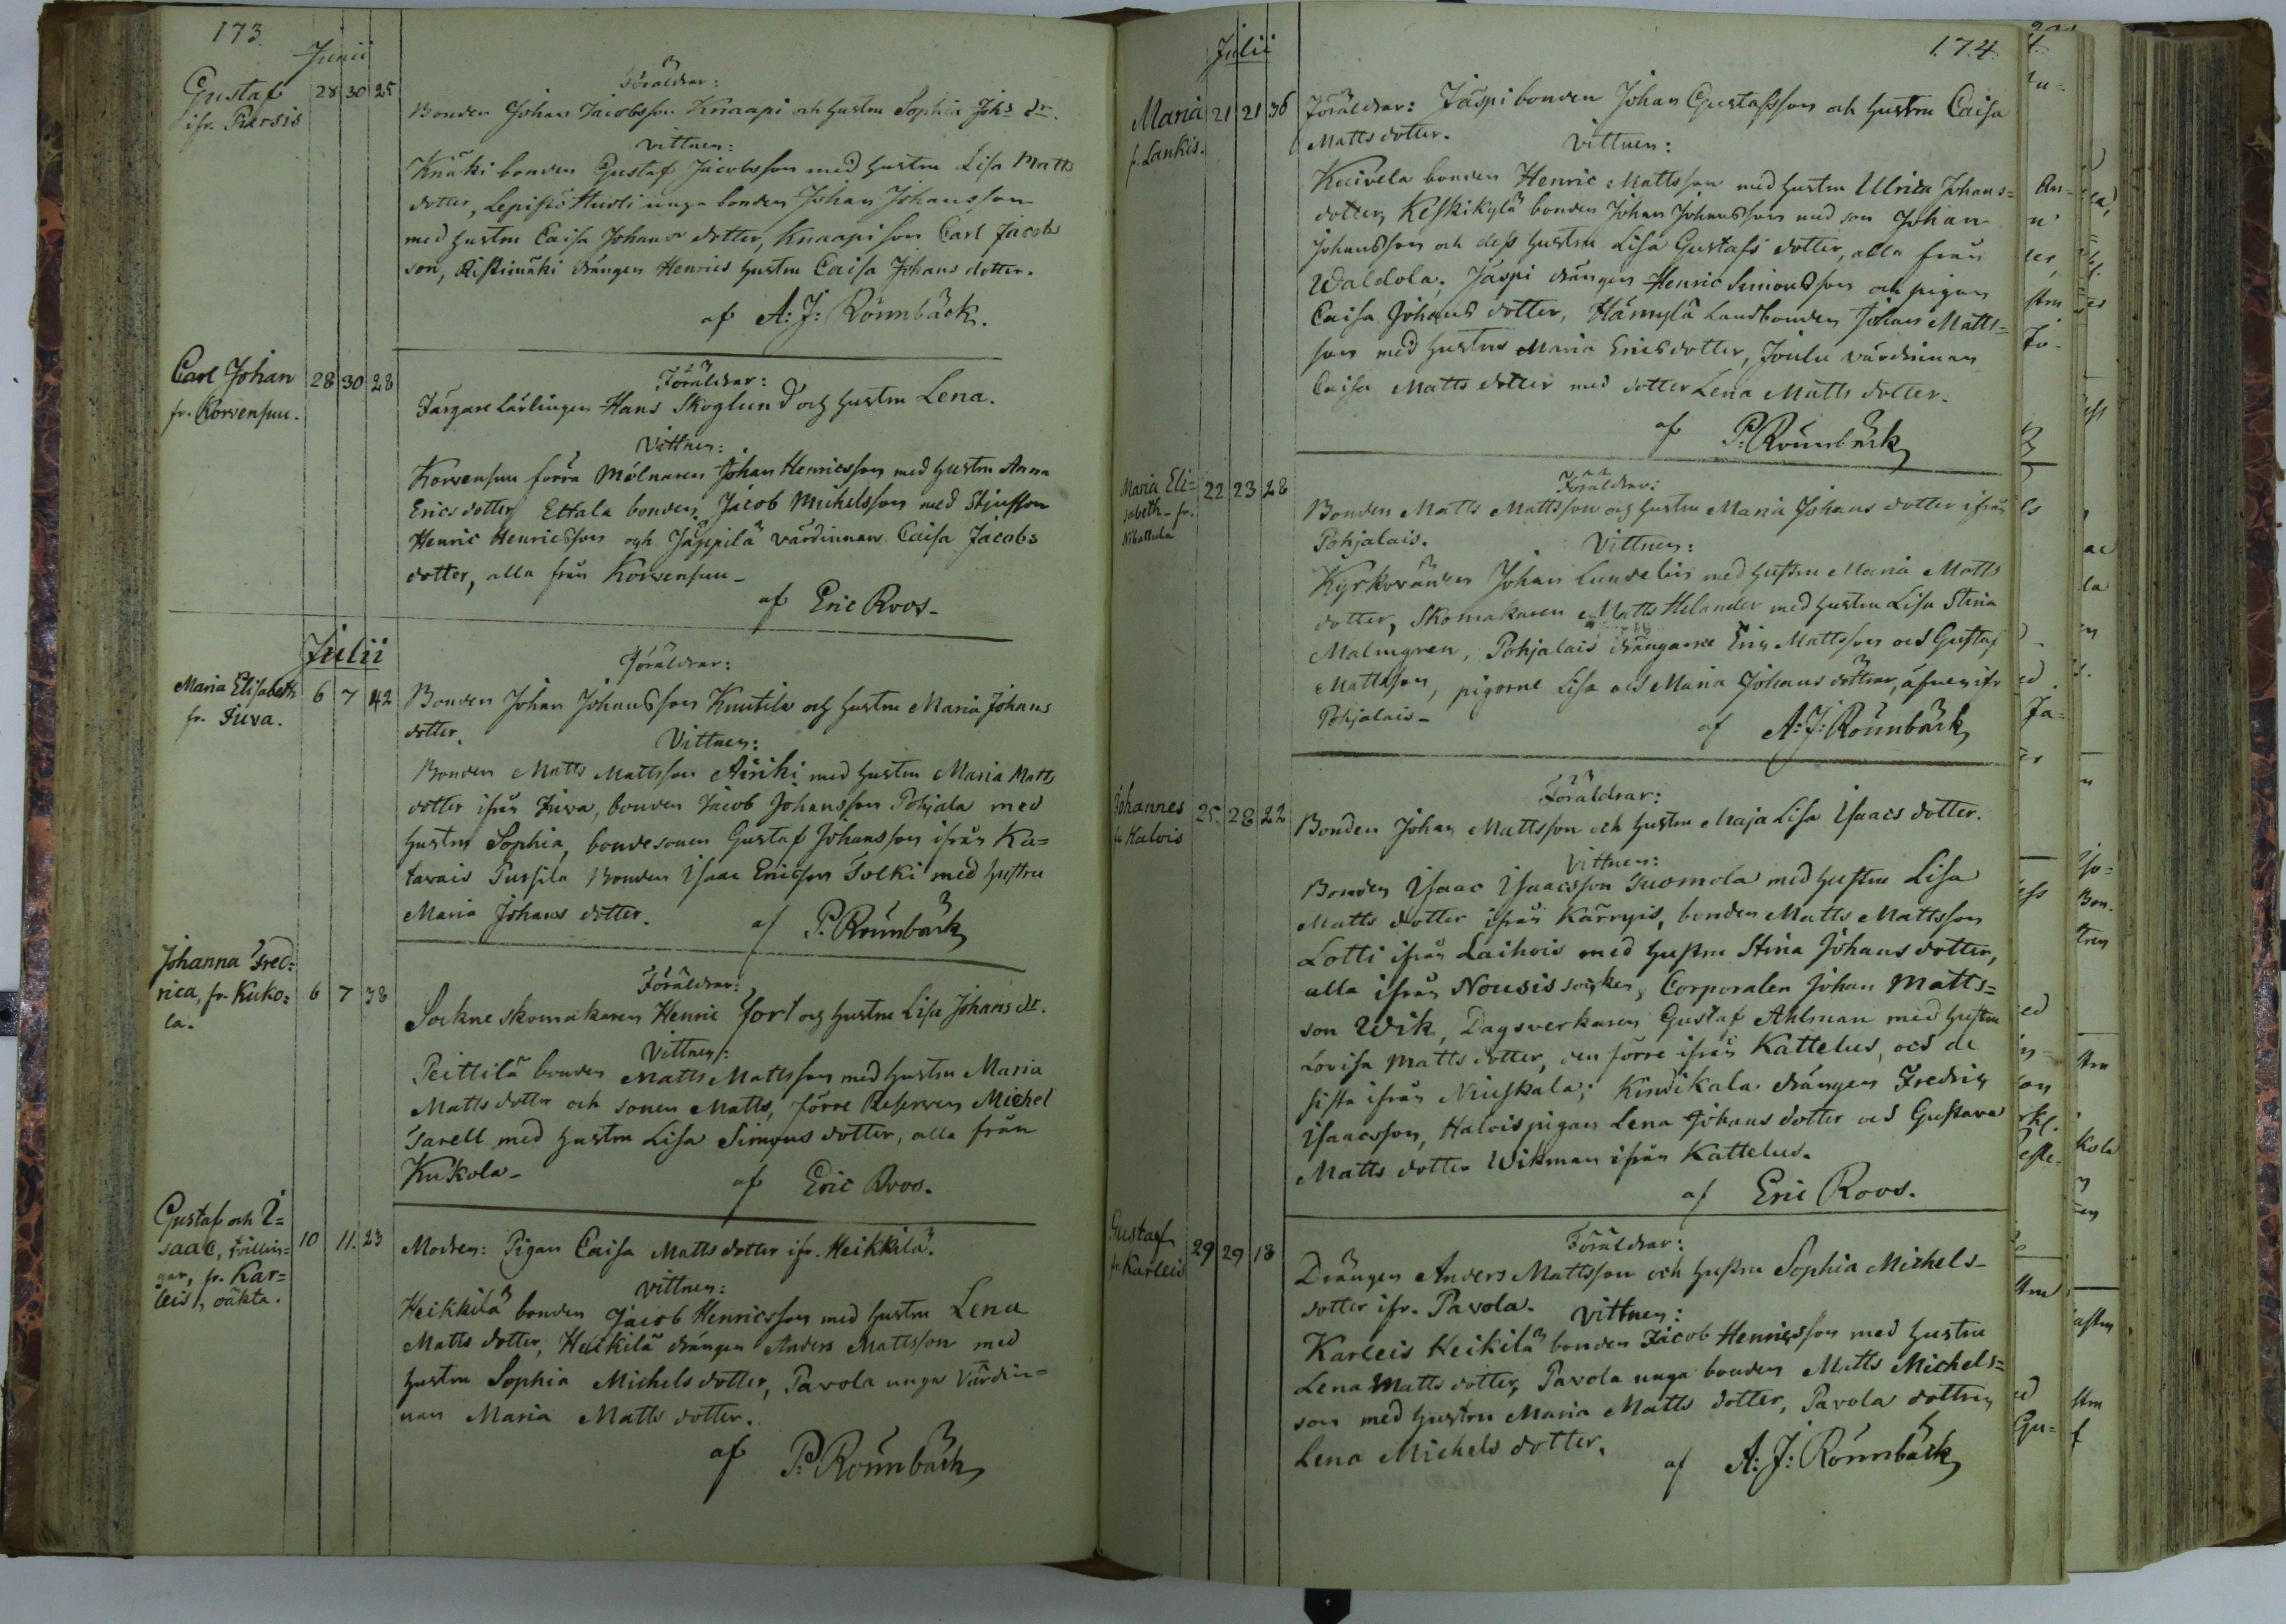 173.
Junii
Gustaf 28 30 25
ifr. Piersis
Föräldrar:
Bonden Johan Jacobsson Knaapi och hustru Sophia Johs dr.
Vittnen:
Knäki bonden Gustaf Jacobsson med hustru Lisa Matts
dotter, Lepistö Huoti unga bonden Johan Johansson
med hustru Caisa Johans dotter, Knaapi son Carl Jacobs
son, Ristimäki drängen Henrics hustru Caisa Johans dotter.
af A: J: Rönnbäck.
Carl Johan 28 30 28
fr. Korvensuu.
Föräldrar:
Färgare lärlingen Hans Skoglund och hustru Lena.
Vittnen:
Korvensuu förra Mölnaren Johan Henricsson med hustru Anna
Ericsdotter, Ettala bonden Jacob Michelsson med Stjufson
Henric Henricsson och Jäppilä värdinnan Caisa Jacobs
dotter, alla från Korvensuu -
af Eric Roos -
Julii
Maria Elisabeth 6 7 42
fr. Juva.
Föräldrar:
Bonden Johan Johansson Knutila och hustru Maria Johans
dotter.
Vittnen:
Bonden Matts Mattsson Äiriki med hustru Maria Matts
dotter ifrån Juva, bonden Jacob Johansson Pohjala med
hustru Sophia, bondesonen Gustaf Johansson ifrån Ka=
tavais Pussila Bonden Isaac Ericsson Tolki med hustru
Maria Johans dotter.
af P. Rönnbäck
Johanna Fred=
rica, fr. Kuko= 6 7 38
la.
Föräldrar:
Sockne skomakaren Henric Fort och hustru Lisa Johans dr.
Vittnen:
Peittilä bonden Matts Mattsson med hustru Maria
Matts dotter och sonen Matts, förre Reserven Michel
Tarell med hustru Lisa Simons dotter, alla från
Kukola -
af Eric Roos.
Gustaf och I=
saac, tvillin= 10 11. 23
gar, fr. Kar=
leis, oäkta.
Modren: Pigan Caisa Matts dotter ifr. Heikkilä.
Vittnen:
Heikkilä bonden Jacob Henricsson med hustru Lena
Matts dotter, Heikkilä drängen Anders Mattsson med
hustru Sophia Michels dotter, Pavola unga Värdin=
nan Maria Matts dotter.
af P. Rönnbäck
174.
Julii
Maria 21 21 36
fr. Lankis.
Föräldrar: Jäspi bonden Johan Gustafsson och hustru Caisa
Matts dotter.
Vittnen:
Kaivela bonden Henric Mattsson med hustru Ulrica Johans=
dotter, Keskikylä bonden Johan Johansson med son Johan
Johansson och dess hustru Lisa Gustafs dotter, alla från
Waldola. Jäspi drängen Henric Simonsson och pigan
Caisa Johans dotter, Hännylä Landbonden Johan Matts=
son med hustru Maria Ericsdotter, Joulu värdinnan
Caisa Matts dotter med dotter Lena Matts dotter.
af P. Rönnbäck
Maria Eli= 22 23 28
sabeth - fr.
Nikattula
Föräldrar:
Bonden Matts Mattsson och hustru Maria Johans dotter ifrån
Pohjalais.
Vittnen:
Kyrkovärden Johan Lundelin med hustru Maria Matts
dotter, Skomakaren Matts Helander med hustru Lisa Stina
Malmgren, Pohjalais drängarne Eric Mattsson och Gustaf
Mattsson, pigorne Lisa och Maria Johans döttrar, äfven ifr
Pohjalais -
af A: J: Rönnbäck
Johannes 25. 28 22
fr. Halois
Föräldrar:
Bonden Johan Mattsson och hustru Maja Lisa Isaacs dotter.
Vittnen:
Bonden Isaac Isaacsson Tuomola med hustru Lisa
Matts dotter ifrån Kärryis, bonden Matts Mattsson
Lotti ifrån Laihois med hustru Stina Johans dotter,
alla ifrån Nousis socken, Corporalen Johan Matts=
son Wik, Dagsverkaren Gustaf Ahlman med hustru
Lovisa Matts dotter, den förre ifrån Kattelus, och de
sista ifrån Niuskala; Kindikala drängen Fredric
Isaacsson, Halois pigan Lena Johans dotter och Gustava
Matts dotter Wikman ifrån Kattelus.
af Eric Roos.
Gustaf 29 29 18
fr. Karleis
Föräldrar:
Drängen Anders Mattsson och hustru Sophia Michels-
dotter ifr. Pavola.
Vittnen:
Karleis Heikilä bonden Jacob Henricsson med hustru
Lena Matts dotter, Pavola unga bonden Matts Michels=
son med hustru Maria Matts dotter, Pavola dottren
Lena Michels dotter.
af A: J: Rönnbäck